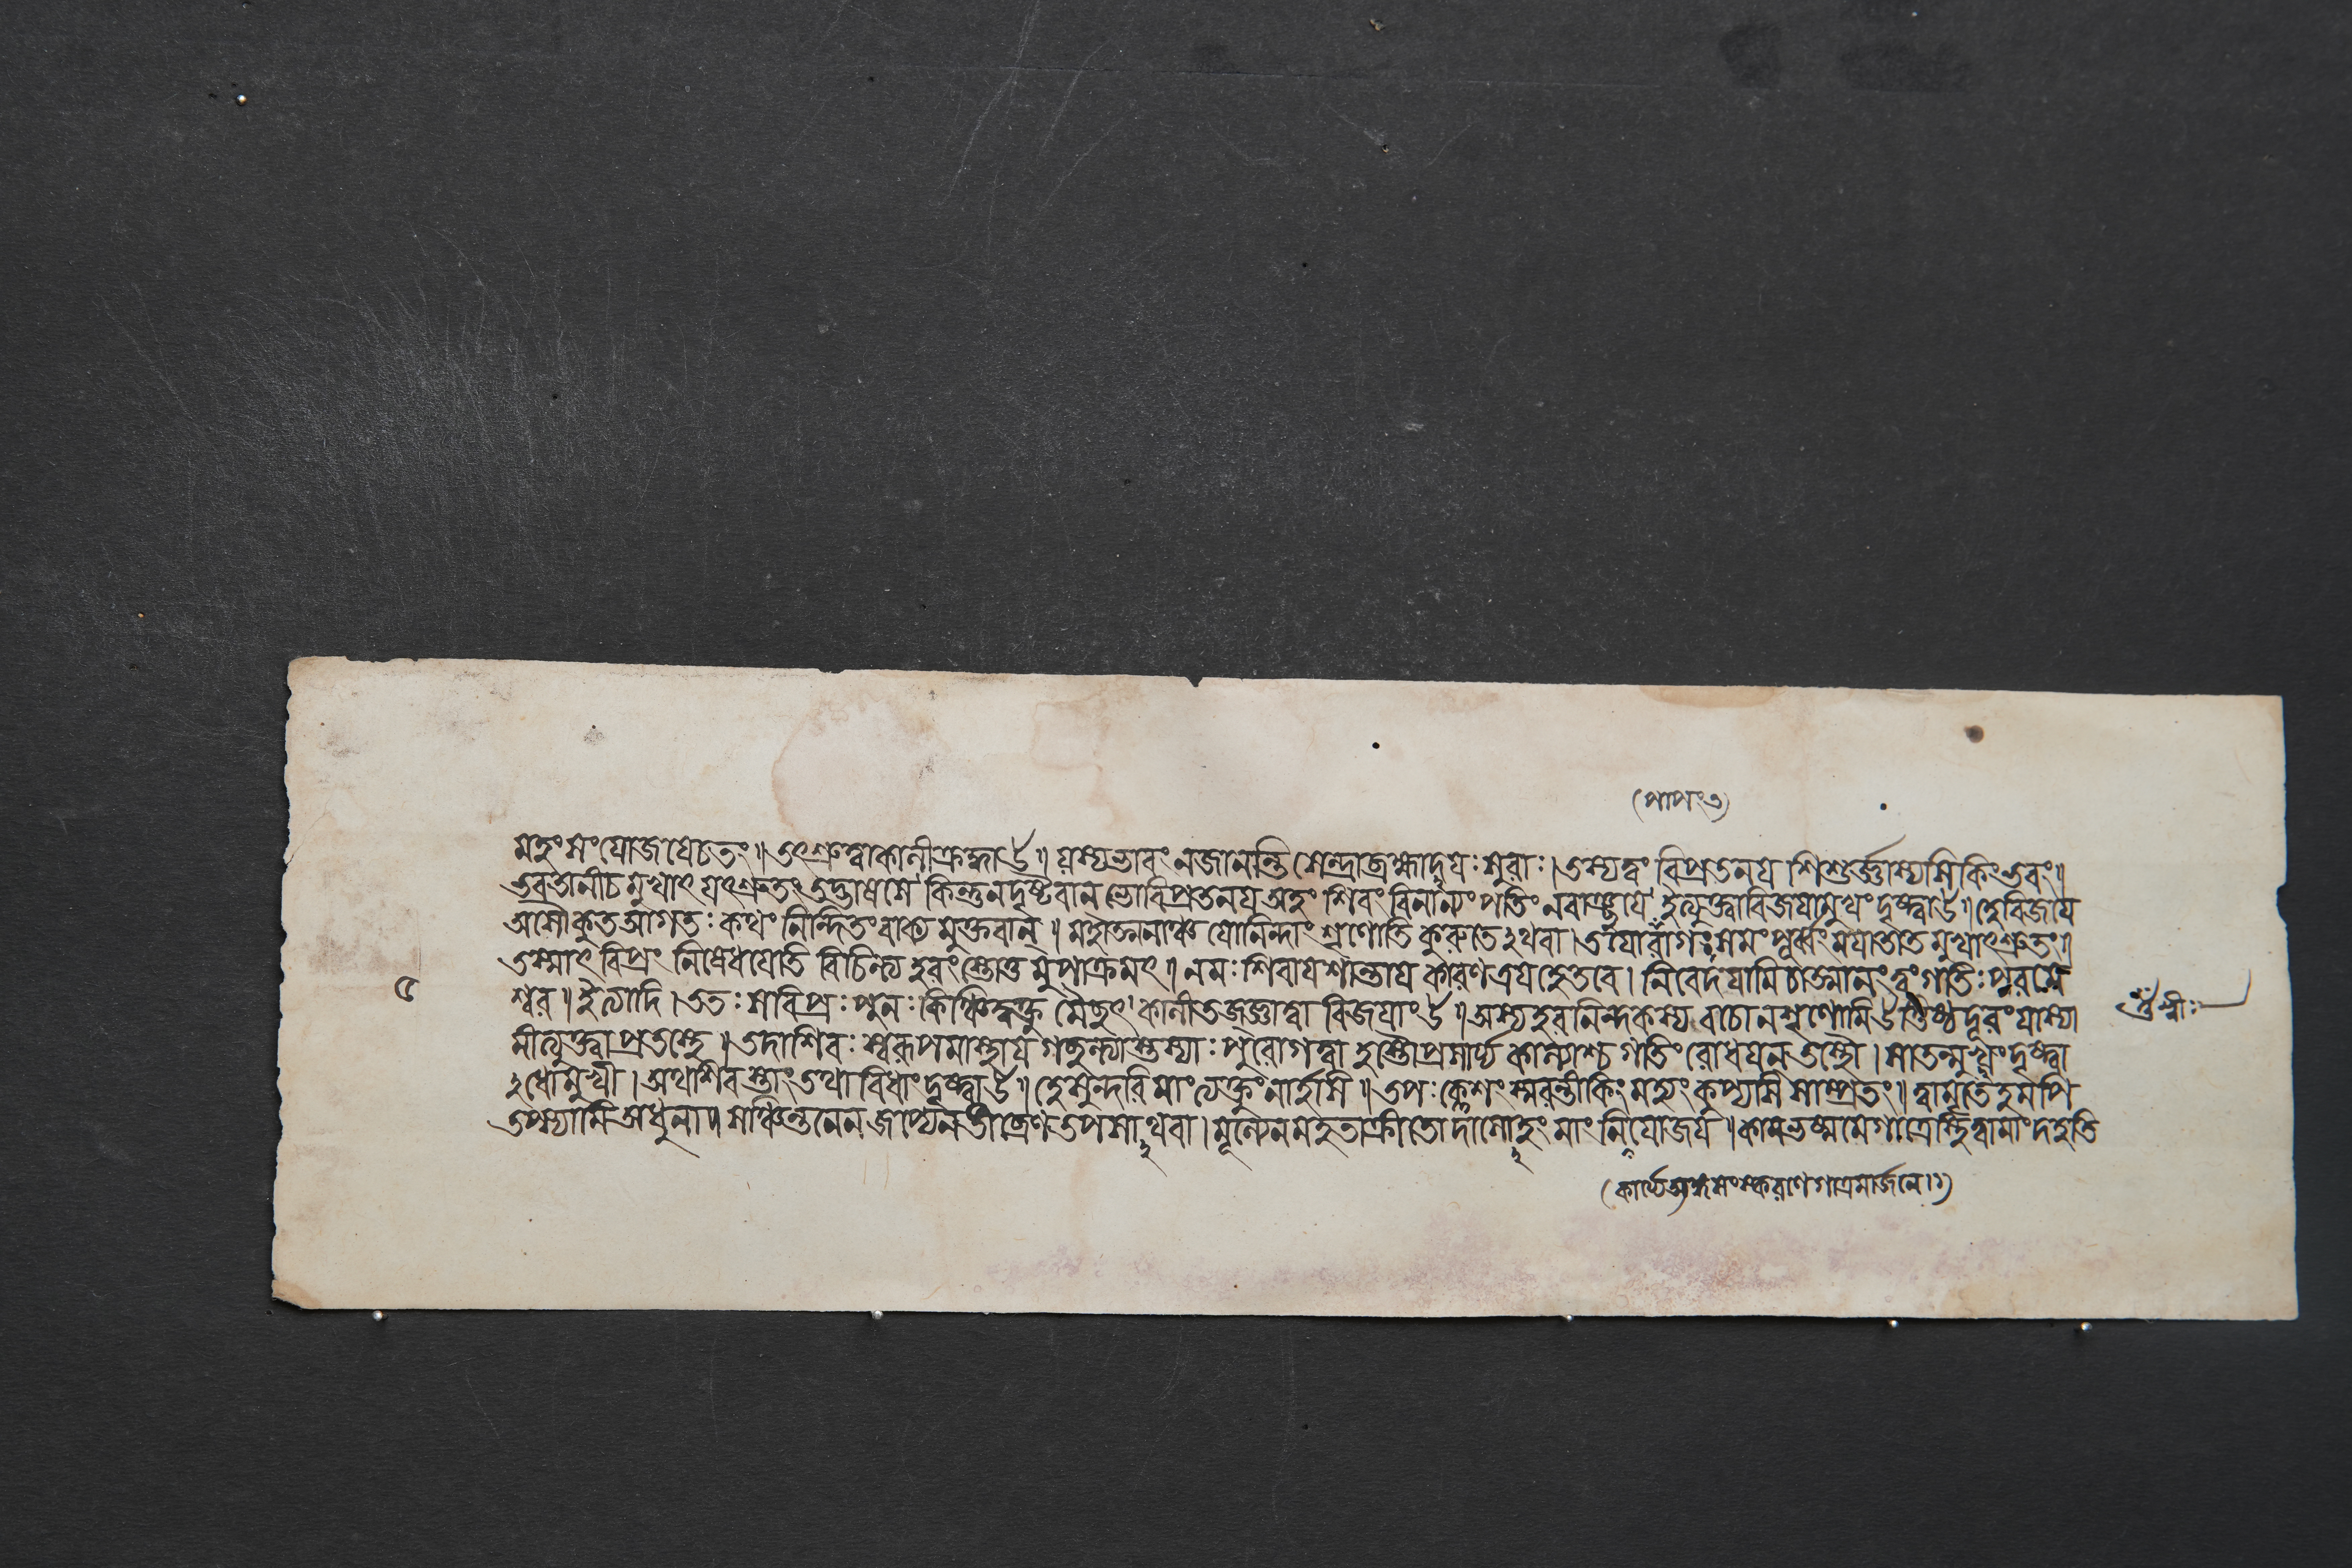 (পাপং ৩)
মহং সংযোজযেচতং॥ তৎশ্রুত্বাকালীক্রুদ্ধাহ॥ যস্যভাবং নজানন্তি সেন্দ্রাব্রহ্মাদযঃ সুরাঃ। তস্যত্বং বিপ্রতনয শিশুর্জ্ঞাস্যসি কিং ভবং॥
ভবতানীচমুখাৎ যৎশ্রুতং তদ্ভাষসে কিন্তুনদৃষ্টবান ভোবিপ্রতনয অহং শিবং বিনান্যং পতিং নবাঞ্ছযে ইত্যুক্ত্বাবিজযামুখং দৃষ্ট্বাহ॥ হেবিজযে
অসৌকুতআগতঃ কথং নিন্দিতং বাক্যমুক্তবান্॥ মহাত্মনাঞ্চ যোনিন্দাং শৃণোতি কুরুতেঽথবা। তযোরাগঃ সমং পূর্ব্বং মযাতাতমুখাৎশ্রুতং॥
তস্মাৎ বিপ্রং নিষেধযেতি বিচিন্ত্য হরংস্তোতুমুপাক্রমৎ॥ নমঃ শিবাযশান্তায কারণত্রযহেতবে। নিবেদযামি চাত্মানং ত্বংগতিঃ পরমে
৫
শ্বর॥ ইত্যাদি। ততঃ সবিপ্রঃ পুনঃ কিঞ্চিদ্বক্তুমৈচ্ছৎ কালীতজ্জ্ঞাত্বা বিজযাং হ॥ অস্যহরনিন্দকস্য বচোনশৃণোমি তিষ্ঠদূরং যাস্যা
মীত্যুক্ত্বা প্রতস্থে॥ তদাশিবঃ স্বরূপমাস্থায গচ্ছন্ত্যাস্তস্যাঃ পুরোগত্বা হস্তৌপ্রসার্য্য কাল্যাশ্চ গতিং রোধযন তস্থৌ। সাতন্মুখং দৃষ্ট্বা
ঽধোমুখী। অথশিবস্তাং তথাবিধাং দৃষ্ট্বাহ॥ হেসুন্দরি মাং ত্যক্তুং নার্হসি॥ তপঃ ক্লেশং স্মরন্তীকিং মহ্যং কুপ্যসি সাম্প্রতং॥ ত্বামৃতেহমপি
তপস্যামি অধুনা॥ সঞ্চিন্তনেন জাপ্যেন তীব্রেণ তপসাঽথবা। মূল্যেনমহতাক্রীতো দাসোঽহং মাং নিযোজয॥ কামভস্মমেগাত্রেস্থিত্বামাং দহতি
(কার্য্যেঅঙ্গসংস্করণে গাত্রমার্জনে।১)